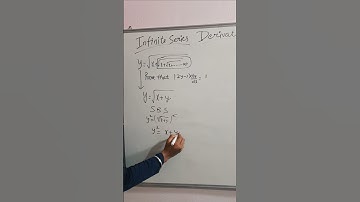 Infinite Series Deriva
y = √x+√x+√x+.....∞
Prove that (2y-1)dy/dx = 1
y = √x+y
S.B.S
y² = (√x+y)²
y² = x+y